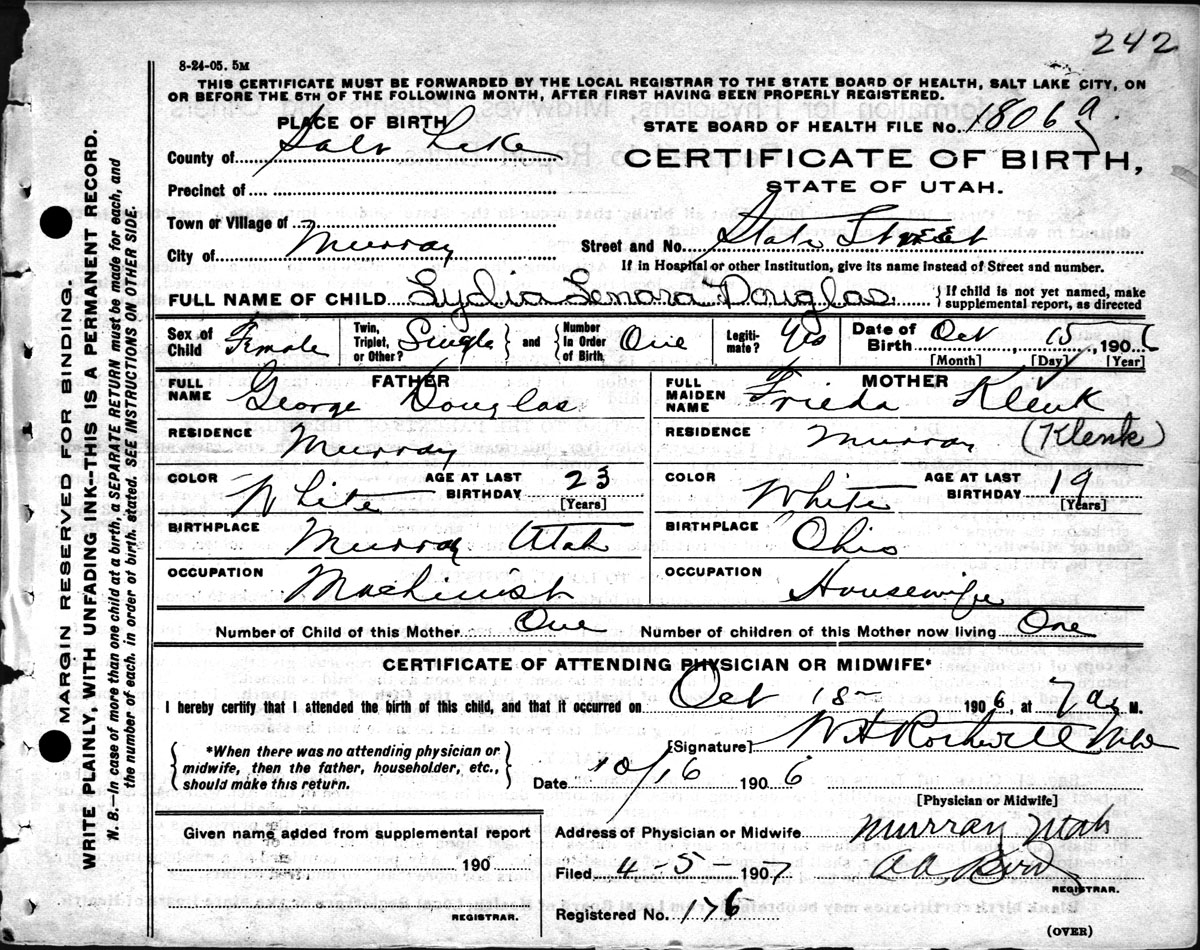 242
8-24-05. 5M
THIS CERTIFICATE MUST BE FORWARDED BY THE LOCAL REGISTRAR TO THE STATE BOARD OF HEALTH, SALT LAKE CITY, ON
OR BEFORE THE 5TH OF THE FOLLOWING MONTH, AFTER FIRST HAVING BEEN PROPERLY REGISTERED.
MARGIN RESERVED FOR BINDING.
WRITE PLAINLY, WITH UNFADING INK--THIS IS A PERMANENT RECORD.
N. B.—In case of more than one child at a birth, a SEPARATE RETURN must be made for each, and
the number of each, in order of birth, stated. SEE INSTRUCTIONS ON OTHER SIDE.
PLACE OF BIRTH
STATE BOARD OF HEALTH FILE No. 18069
County of Salt Lake
CERTIFICATE OF BIRTH,
Precinct of
STATE OF UTAH.
Town or Village of
City of Murray
Street and No. State Street
If in Hospital or other Institution, give its name instead of Street and number.
FULL NAME OF CHILD Lydia Lenara Douglas { If child is not yet named, make supplemental report, as directed
Sex of Child Female Twin, Triplet, or Other? Single } and { Number In Order of Birth One Legitimate? Yes Date of Birth Oct, 15, 1906
[Month] [Day] [Year]
FATHER
FULL NAME George Douglas
RESIDENCE Murray
COLOR White AGE AT LAST BIRTHDAY 23
[Years]
BIRTHPLACE Murray Utah
OCCUPATION Machinist
MOTHER
FULL MAIDEN NAME Frieda Klenk
RESIDENCE Murray (Klenk)
COLOR White AGE AT LAST BIRTHDAY 19
[Years]
BIRTHPLACE Ohio
OCCUPATION Housewife
Number of Child of this Mother One Number of children of this Mother now living One
CERTIFICATE OF ATTENDING PHYSICIAN OR MIDWIFE*
I hereby certify that I attended the birth of this child, and that it occurred on Oct 15 1906, at 7 a. M.
{ *When there was no attending physician or midwife, then the father, householder, etc., should make this return. }
[Signature] W H Rothwell MD
Date 10/16 1906
[Physician or Midwife]
Given name added from supplemental report
190
REGISTRAR.
Address of Physician or Midwife Murray Utah
Filed 4-5- 1907
REGISTRAR.
Registered No. 176
(OVER)